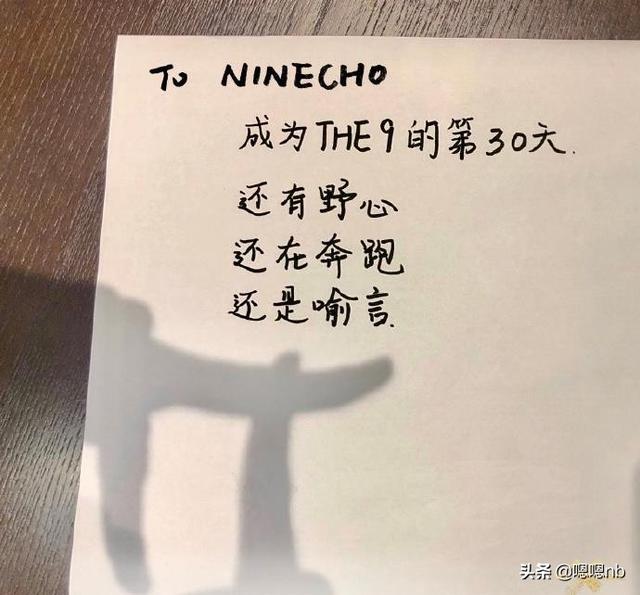 To NINECHO
成为THE9的第30天.
还有野心
还在奔跑
还是喻言.
头条 @嗯嗯nb